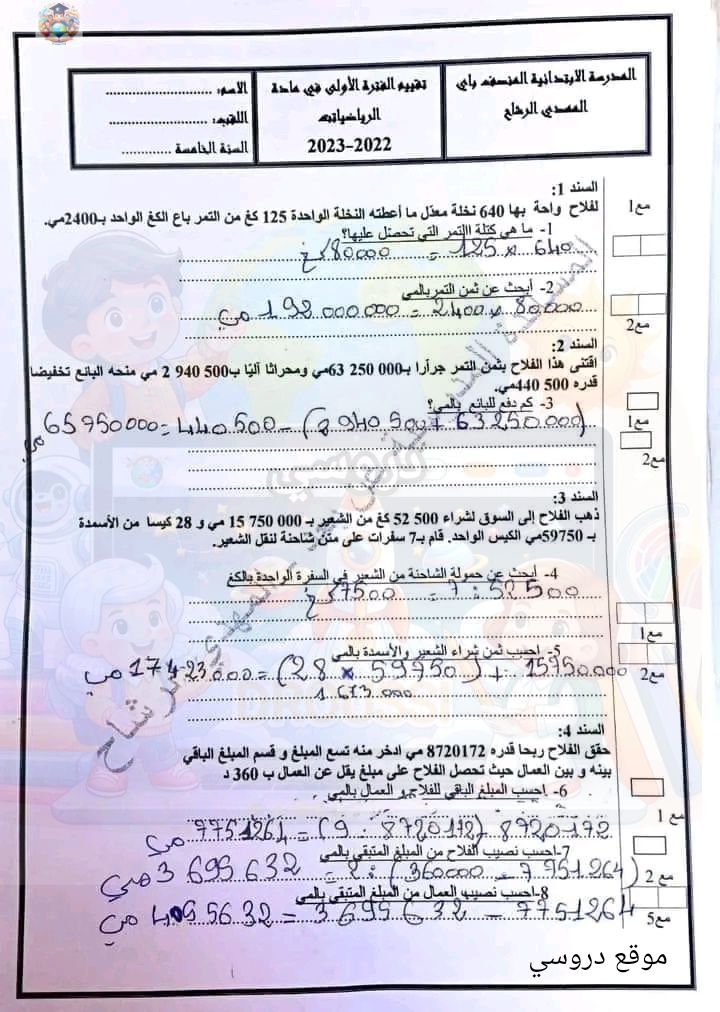 المدرسة الابتدائية المنصف باي
المهدي الرشاح
تقييم الفترة الأولى في مادة
الرياضيات
2023-2022
الاسم: ............................
اللقب: ..........................
السنة الخامسة .............
السند 1:
لفلاح واحة بها 640 نخلة معدّل ما أعطته النخلة الواحدة 125 كغ من التمر باع الكغ الواحد بـ2400مي.
مع1
1- ما هي كتلة التمر التي تحصّل عليها؟
640 × 125 = 80000 كغ
2- أبحث عن ثمن التمر بالمي
80000 × 2400 = 192 000 000 مي
مع2
السند 2:
اقتنى هذا الفلاح بثمن التمر جرارا بـ000 250 63مي ومحراثا آليا ب500 940 2 مي منحه البائع تخفيضا
قدره 500 440مي.
3- كم دفع للبائع بالمي؟
مع1
(63250000 + 2 940 500) – 440 500 = 65750000 مي
مع2
السند 3:
ذهب الفلاح إلى السوق لشراء 500 52 كغ من الشعير بـ 000 750 15 مي و 28 كيسا من الأسمدة
بـ 59750مي الكيس الواحد. قام بـ7 سفرات على متن شاحنة لنقل الشعير.
4- أبحث عن حمولة الشاحنة من الشعير في السفرة الواحدة بالكغ
52500 : 7 = 7500 كغ
مع1
5- احسب ثمن شراء الشعير والأسمدة بالمي
15750000 + (59750 × 28) = 17423000 مي
مع2
1 673 000
السند 4:
حقق الفلاح ربحا قدره 8720172 مي ادخر منه تسع المبلغ و قسم المبلغ الباقي
بينه و بين العمال حيث تحصل الفلاح على مبلغ يقل عن العمال ب 360 د
6- احسب المبلغ الباقي للفلاح و العمال بالمي
مع1
8720172 – (8720172 : 9) = 7751264 مي
7-احسب نصيب الفلاح من المبلغ المتبقي بالمي
(7751264 – 360000) : 2 = 3 695 632 مي
مع2
8-احسب نصيب العمال من المبلغ المتبقي بالمي
7751264 – 3695632 = 4055632 مي
مع5
موقع دروسي
دروسي
DROUSSI